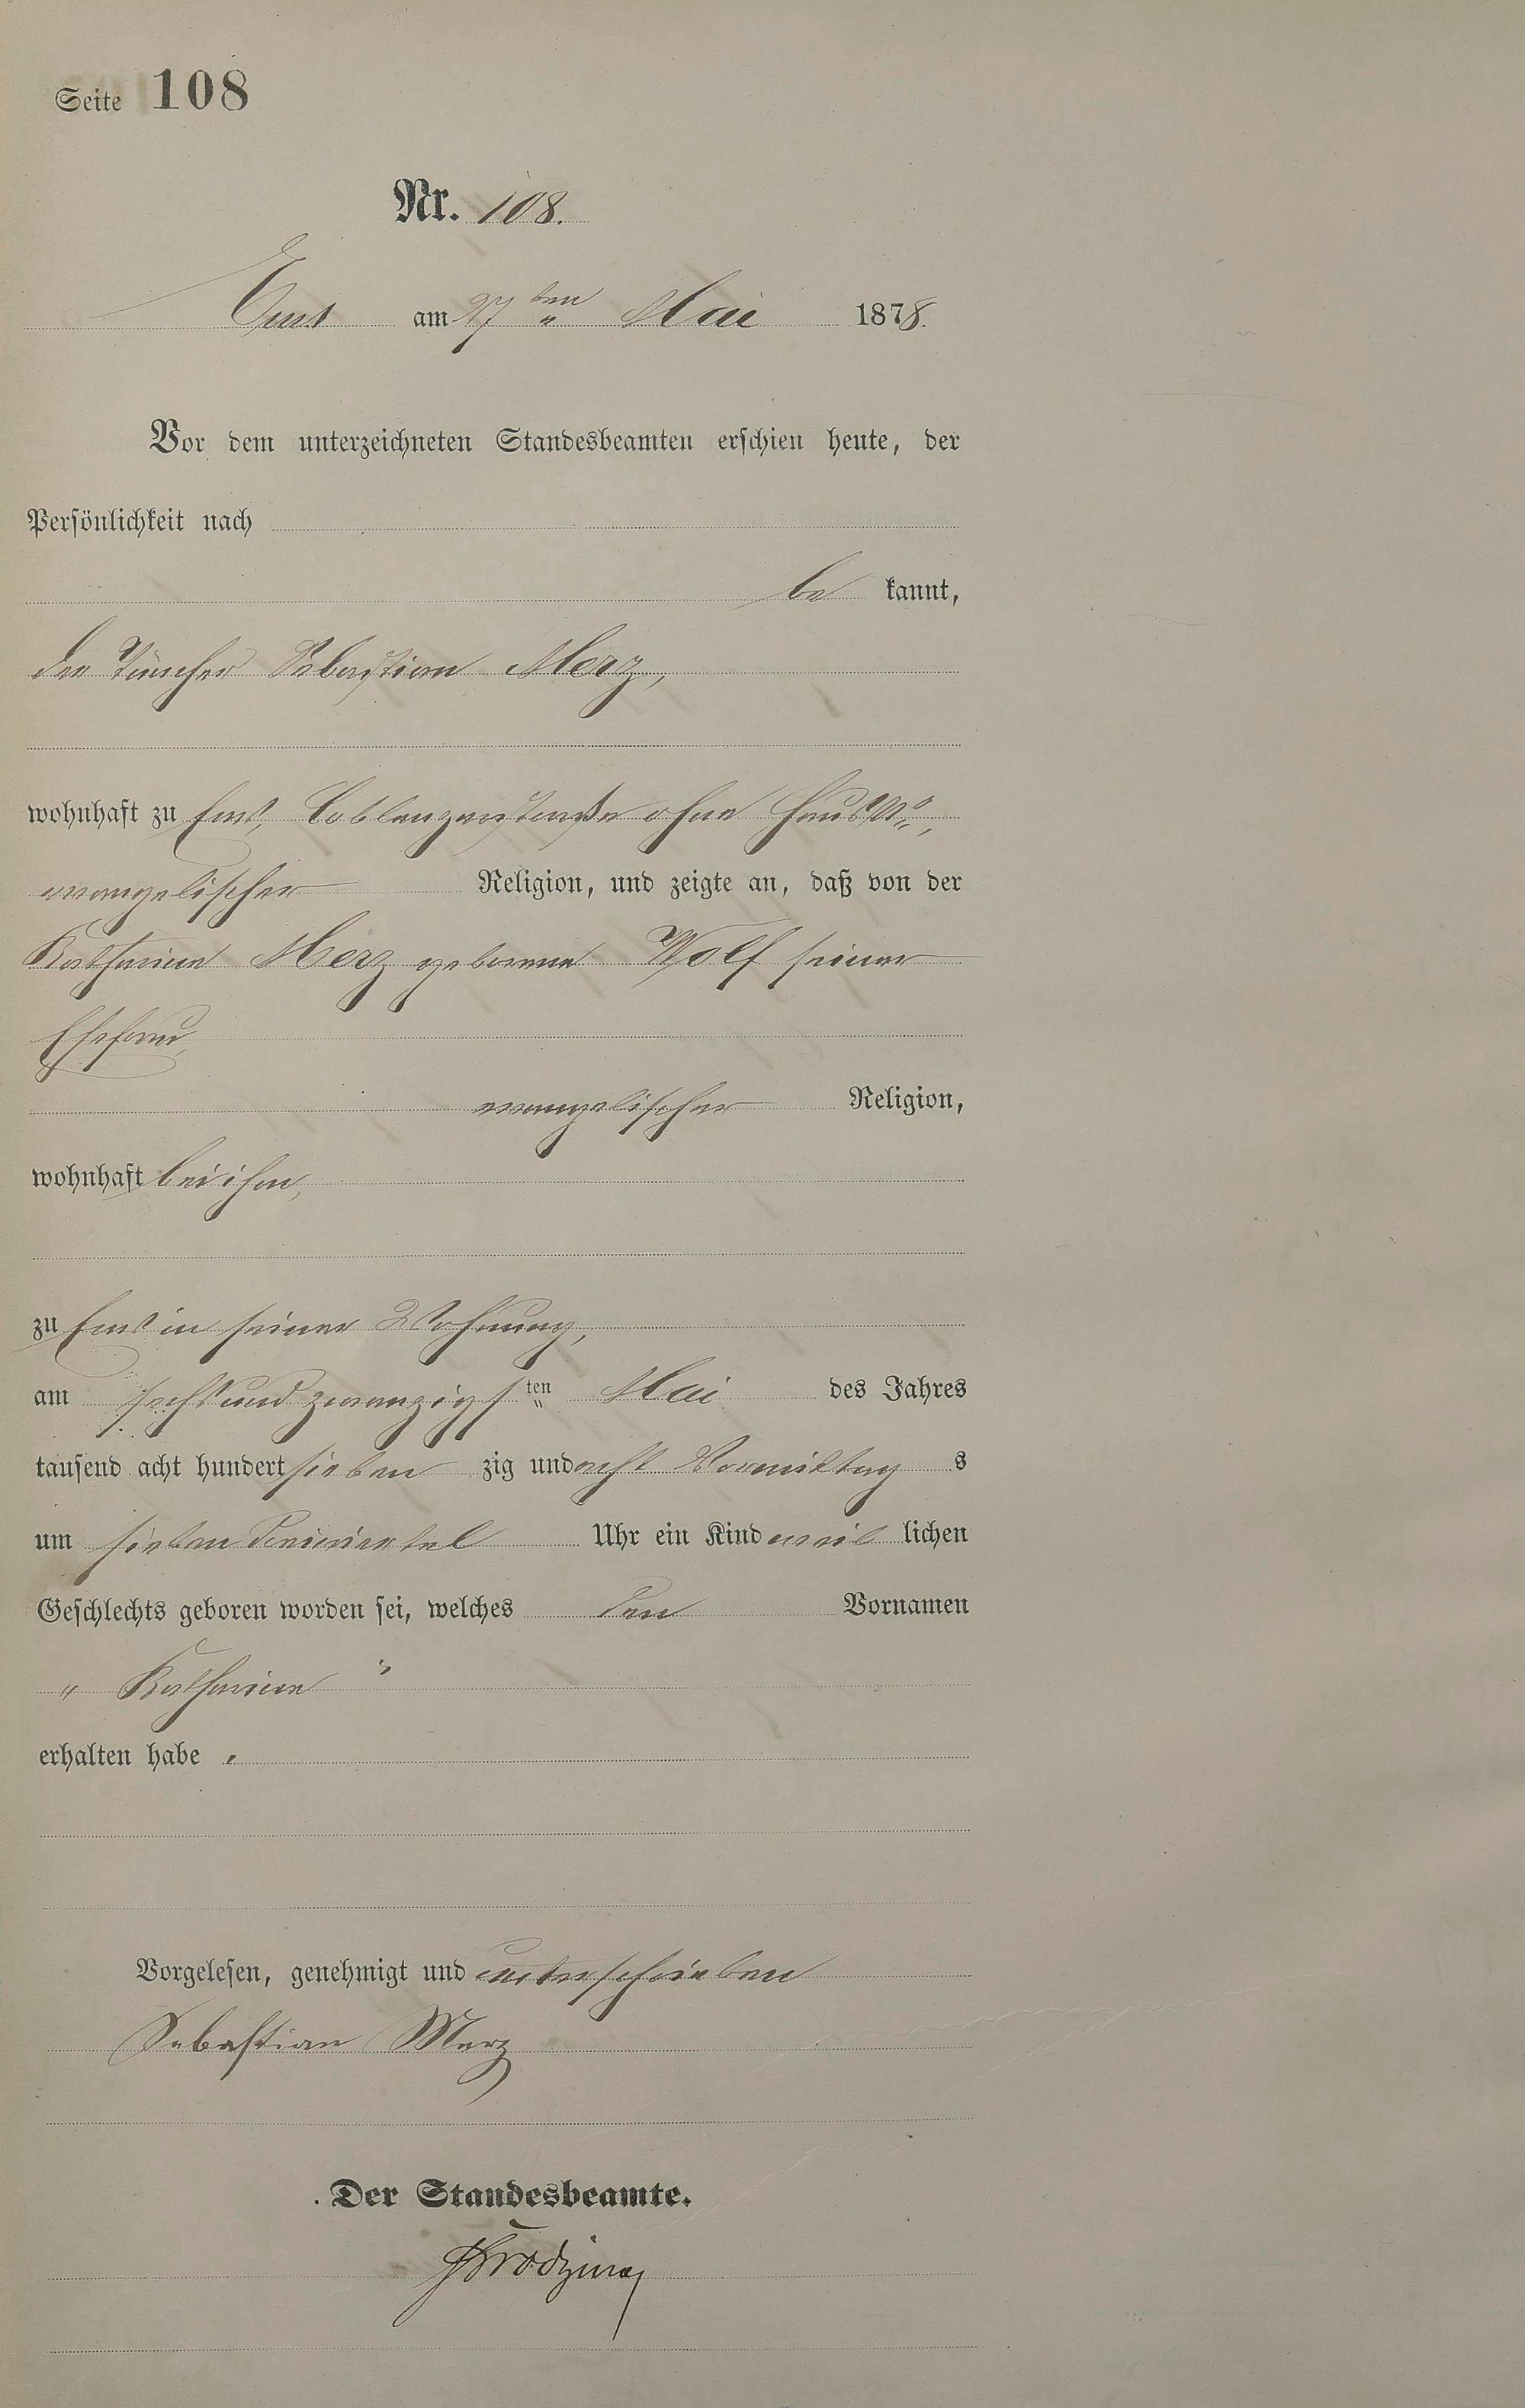 Seite 108
Nr. 108.
Ems am 27 ten Mai 1878.
Vor dem unterzeichneten Standesbeamten erschien heute, der
Persönlichkeit nach
be kannt,
der Tüncher Sebastian Merz,
wohnhaft zu Ems, Coblenzerstraße ohne Haus No,
evangelischer Religion, und zeigte an, daß von der
Katharina Merz geborene Wolf seiner
Ehefrau,
evangelischer Religion,
wohnhaft bei ihm,
zu Ems in seiner Wohnung,
am sechsundzwanzigsten Mai des Jahres
tausend acht hundert sieben zig und acht Vormittag s
um sieben dreiviertel Uhr ein Kind weib lichen
Geschlechts geboren worden sei, welches den Vornamen
„ Katharina “
erhalten habe .
Vorgelesen, genehmigt und unterschrieben
Sebastian Merz
Der Standesbeamte.